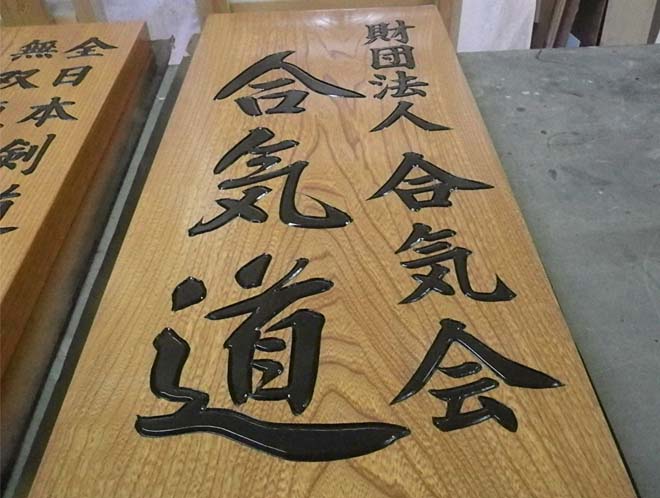 財団法人 合気会
合気道
全日本剣道
無双